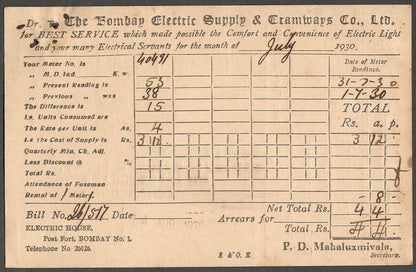 Dr. To The Bombay Electric Supply & Tramways Co., Ltd.
for BEST SERVICE which made possible the Comfort and Convenience of Electric Light
and your many Electrical Servants for the month of July 1930.
Your Meter No. is 40491 Date of Meter Readings.
" M. D. Ind. K. w.
" Present Reading is 53 31-7-30
" Previous " was 38 1-7-30
The Difference is 15 TOTAL
i.e. Units Consumed are Rs. a. p.
The Rate per Unit is As. 4
i.e. the Cost of Supply is Rs. 3 12 3 12
Quarterly Min. Ch. Adj.
Less Discount @ %
Total Rs.
Attendance of Fuseman
Rental of 1 Meter - 8
Bill No. 26/517 Date Net Total Rs. 4 4
ELECTRIC HOUSE, Arrears for Rs.
Post Fort, BOMBAY No. 1. Total Rs. 4 4
Telephone No. E & O. E. P. D. Mahaluxmivala,
Secretary.